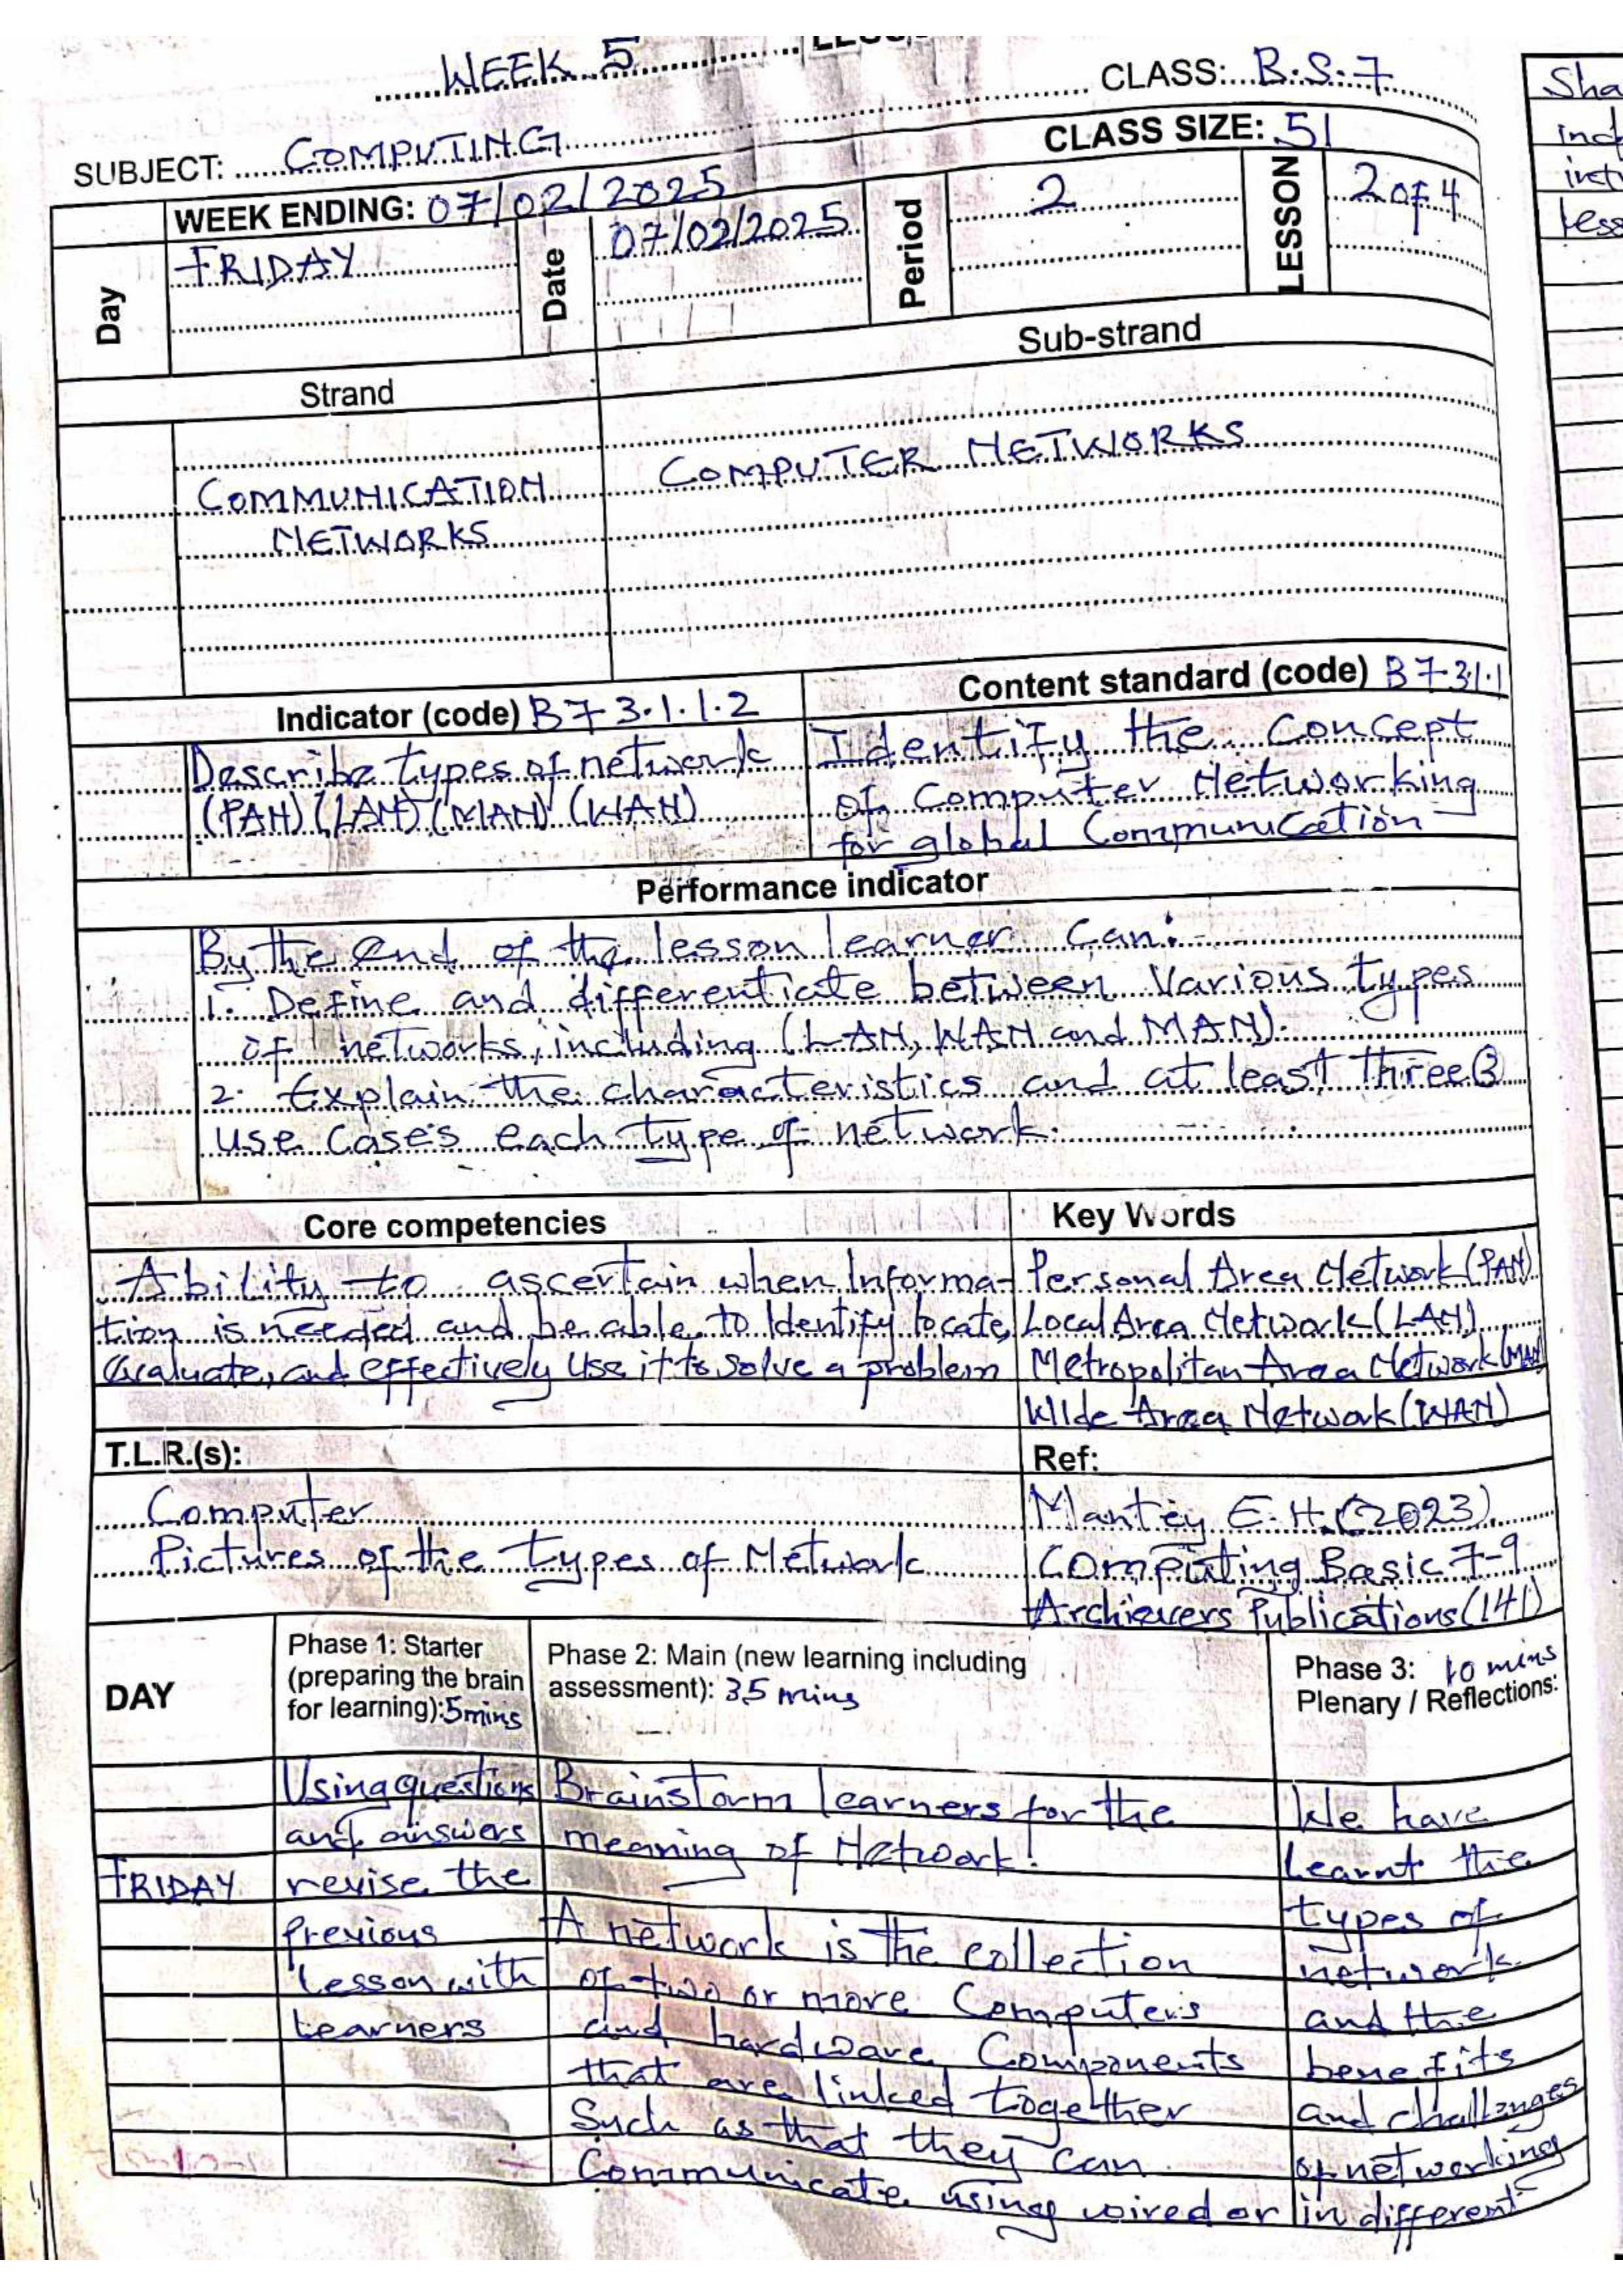 WEEK 5
CLASS: B.S.7
SUBJECT: COMPUTING
CLASS SIZE: 51
WEEK ENDING: 07/02/2025
Day
FRIDAY
Date
07/02/2025
Period
2
LESSON
2 of 4
Strand
Sub-strand
COMMUNICATION
NETWORKS
COMPUTER NETWORKS
Indicator (code) B7 3.1.1.2
Content standard (code) B7 3.1.1
Describe types of network
(PAN) (LAN) (MAN) (WAN)
Identify the Concept
of Computer Networking
for global Communication
Performance indicator
By the end of the lesson learner can:-
1. Define and differenticate between Various types
of networks, including (LAN, WAN and MAN).
2. Explain the characteristics and at least three 3
use cases each type of network.
Core competencies
Key Words
Ability to ascertain when Informa-
tion is needed and be able to Identify locate,
Evaluate, and effectively Use it to solve a problem
Personal Area Network (PAN)
Local Area Network (LAN)
Metropolitan Area Network (MAN
Wide Area Network (WAN)
T.L.R.(s):
Ref:
Computer
Pictures of the types of Network
Mantey E.H. (2023)
Computing Basic 7-9
Archievers Publications (141)
DAY
Phase 1: Starter
(preparing the brain
for learning): 5mins
Phase 2: Main (new learning including
assessment): 35 mins
Phase 3: 10 mins
Plenary / Reflections:
FRIDAY
Using questions
and answers
revise the
Previous
Lesson with
Learners
Brainstorm learners for the
meaning of Network!
A network is the collection
of two or more Computers
and hardware Components
that are linked together
Such as that they can
Communicate using wired or
We have
Learnt the
types of
network
and the
benefits
and challenges
of networking
in different
Sha
inc
less